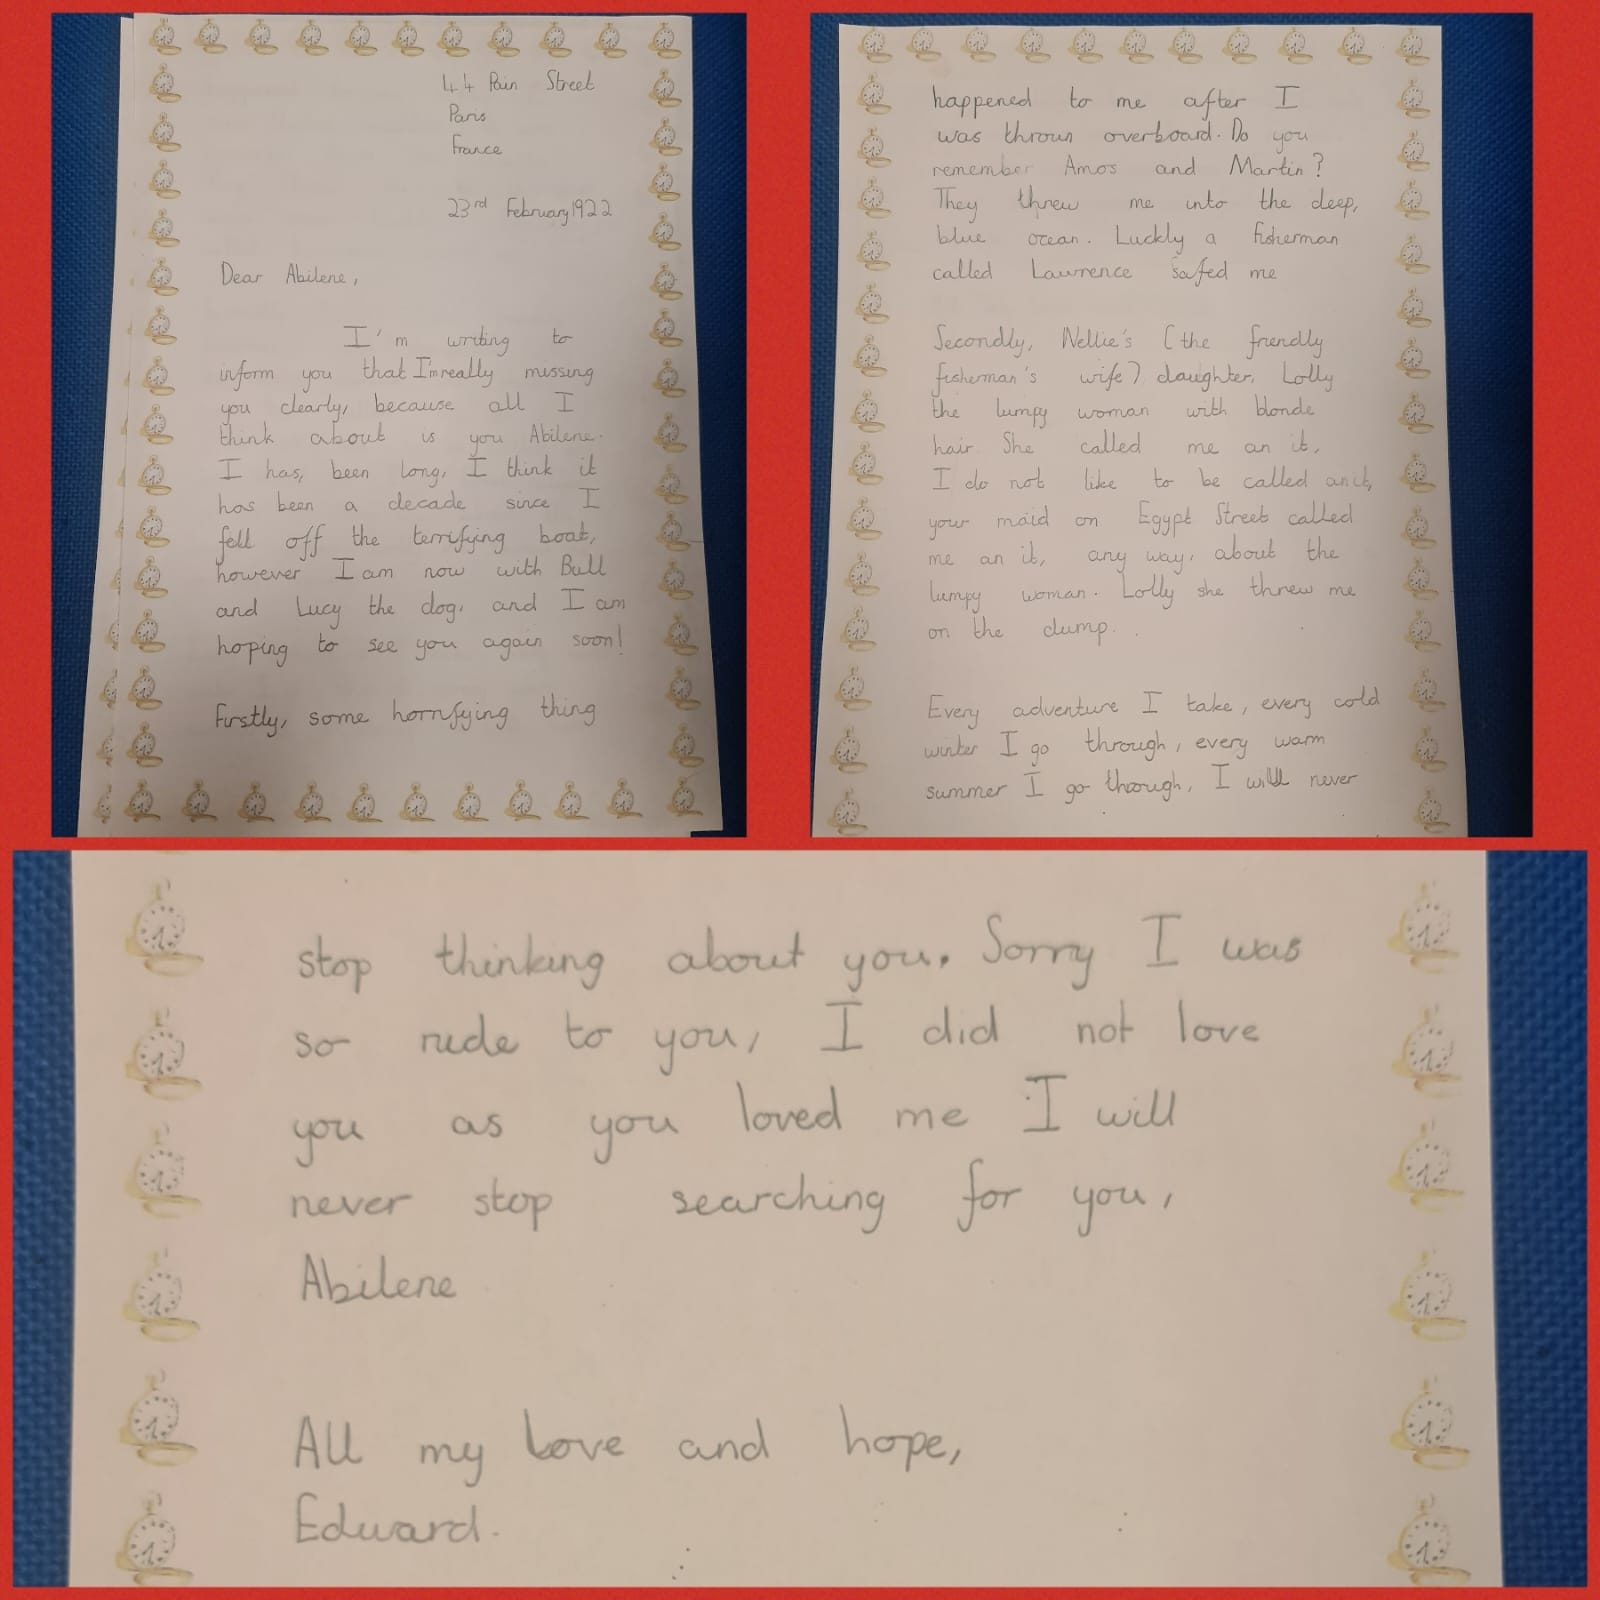 44 Pain Street
Paris
France
23rd February 1922
Dear Abilene,
I'm writing to
inform you that I'm really missing
you clearly, because all I
think about is you Abilene.
I has, been long, I think it
has been a decade since I
fell off the terrifying boat,
however I am now with Bull
and Lucy the dog, and I am
hoping to see you again soon!
Firstly, some horrifying thing
happened to me after I
was thrown overboard. Do you
remember Amos and Martin?
They threw me into the deep,
blue ocean. Luckly a fisherman
called Lawrence safed me
Secondly, Nellie's (the friendly
fisherman's wife) daughter, Lolly
the lumpy woman with blonde
hair. She called me an it,
I do not like to be called an it,
your maid on Egypt Street called
me an it, any way, about the
lumpy woman. Lolly she threw me
on the dump.
Every adventure I take, every cold
winter I go through, every warm
summer I go through, I will never
stop thinking about you. Sorry I was
so rude to you, I did not love
you as you loved me I will
never stop searching for you,
Abilene
All my love and hope,
Edward.